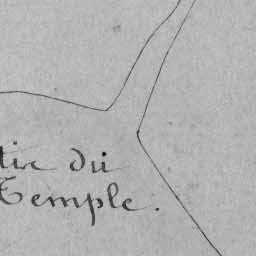 tie du
Temple.